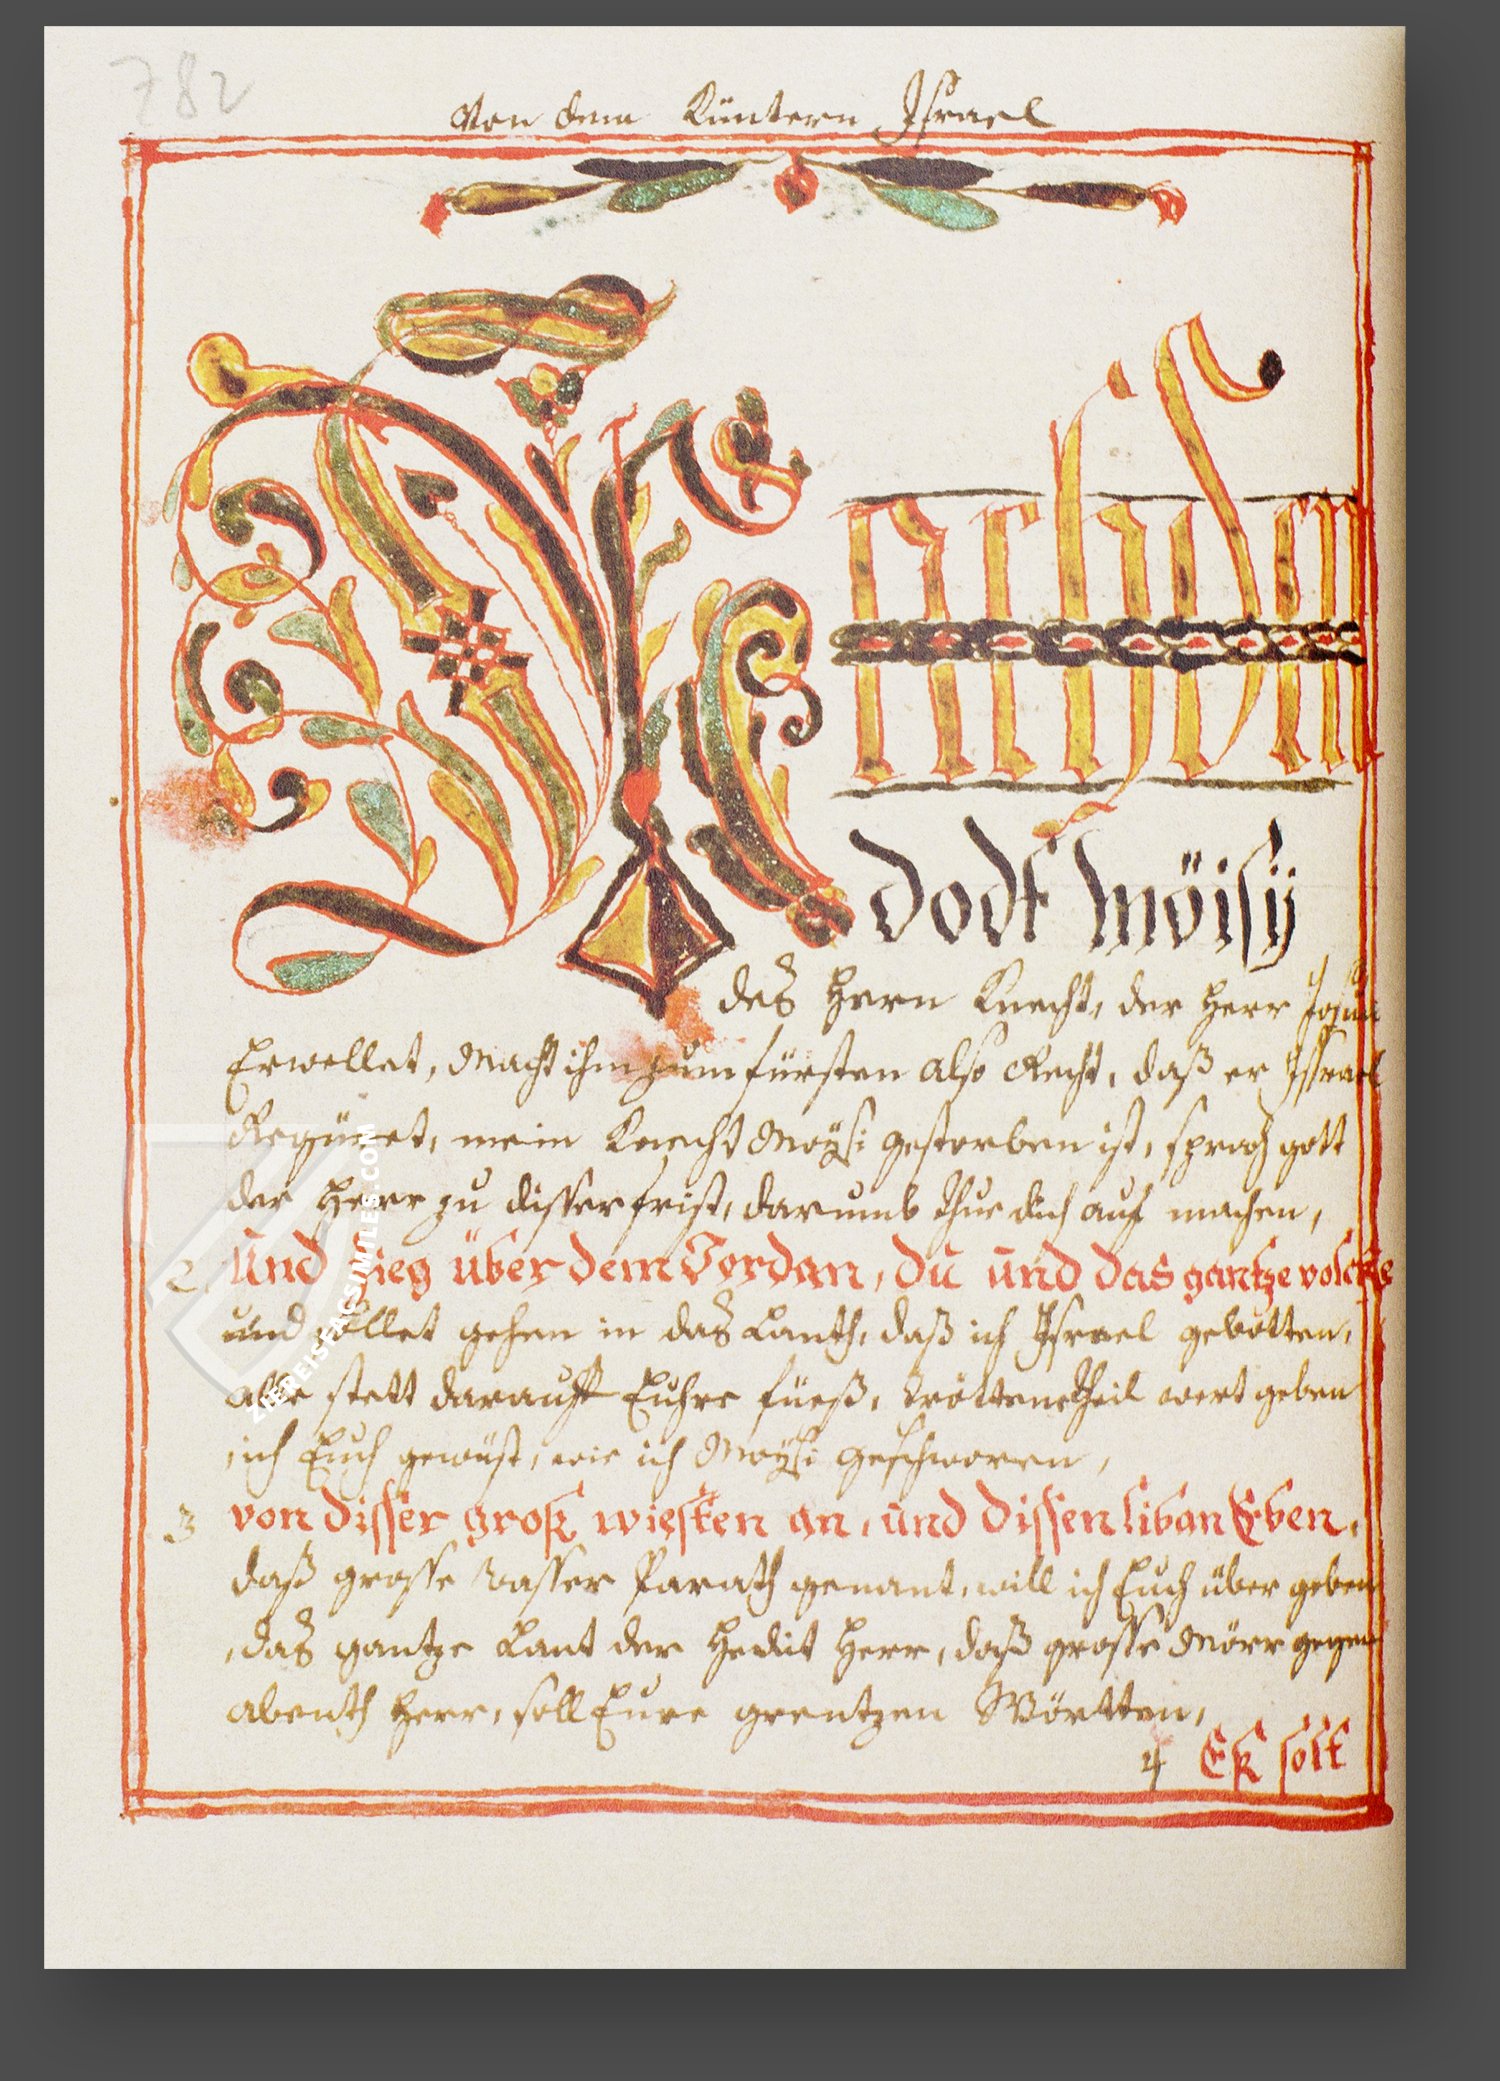 782
Von dem Küntern Israel
Nachdem
dodt Möisÿ
deß Herrn Knecht, der Herr Josua
Erwellet, Macht ihm zum fürsten also Recht, daß er Issrael
Regüret, mein Knecht Moÿsi gestorben ist, sprach gott
der Herr zu disser frist, darumb thue dich auf machen,
2. Und zieg über dem Jordan, du und das gantze volcke
und sollet gehen in daß Lanth, daß ich Israel gebotten,
alle stett darauff Euhre füeß, tröttene theil wert geben
ich Euch gewüst, wie ich Moÿsi geschworen,
3 von disser groß wiesten an, und dissen liban Eben,
daß grosse wasser Parath genant, will ich Euch über geben
daß gantze Lant der Hediit Herr, daß grosse Mörr gegen
abenth Herr, soll Eure grentzen Wörtten,
4 Eß solt
ZIEREISFACSIMILES.COM